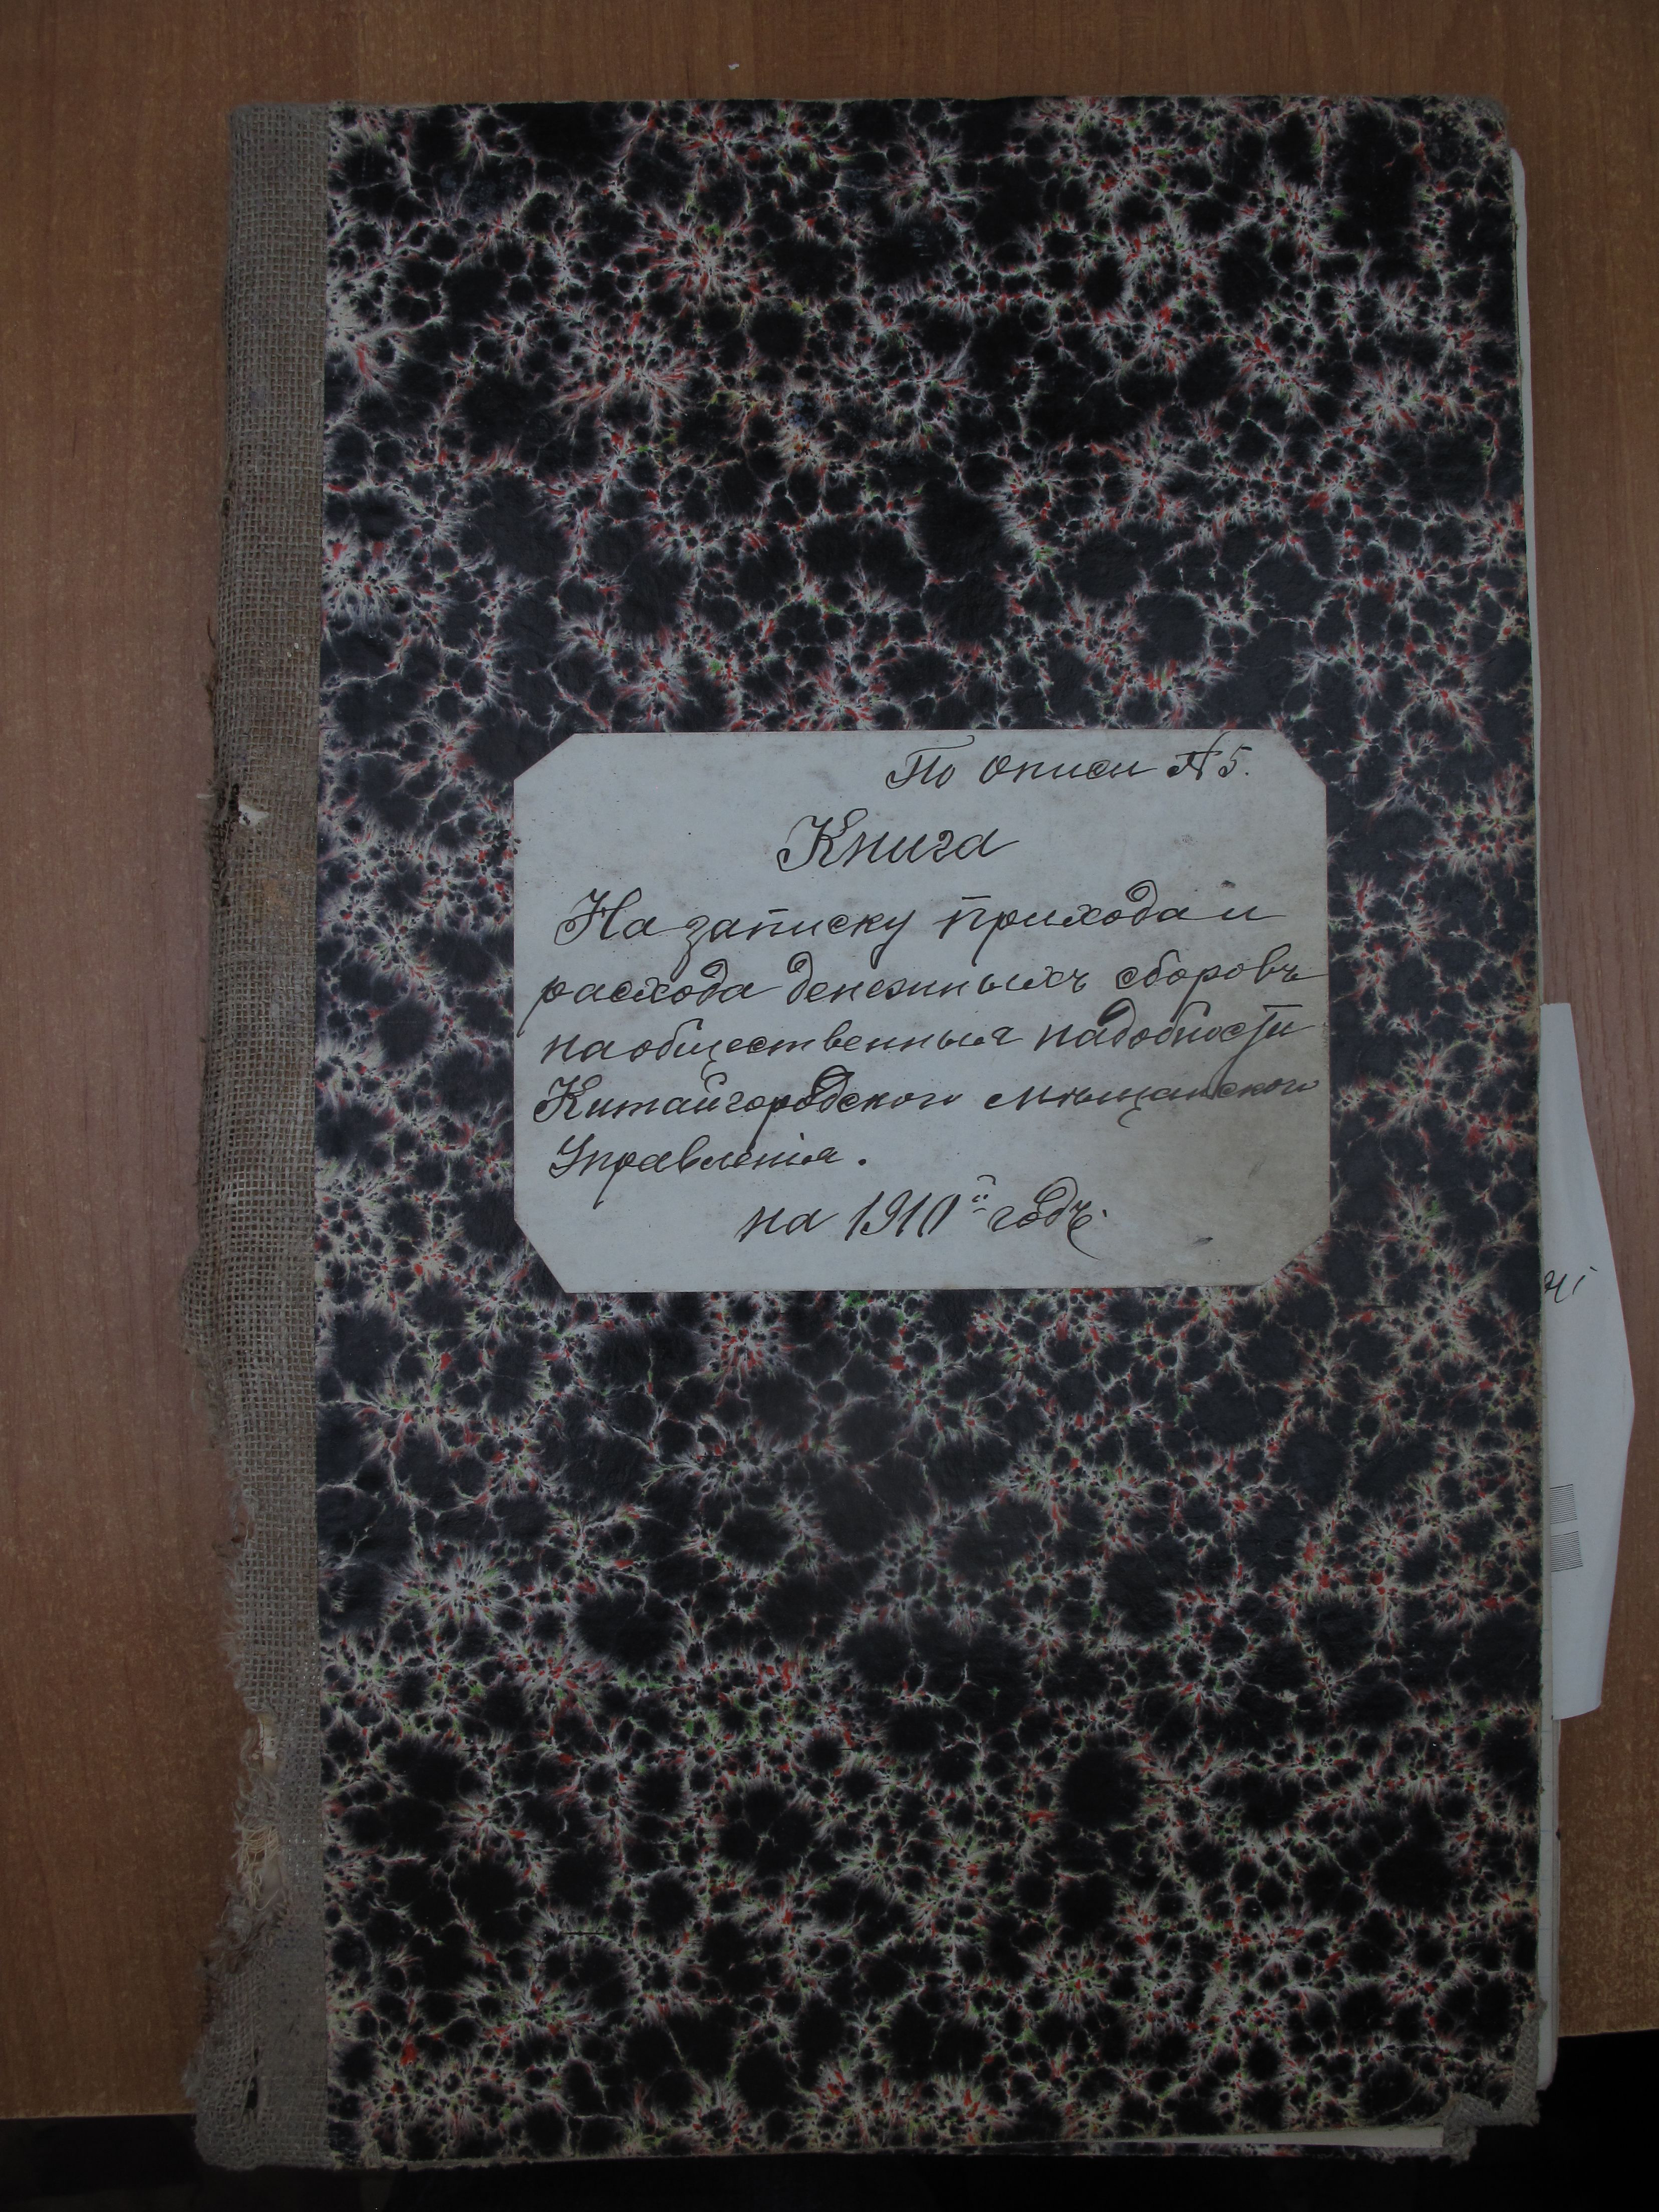 По описи № 5.
Книга
На записку прихода и
расхода денежныхъ сборовъ
на общественныя надобности
Китайгородского мѣщанского
Управленія.
на 1910й годъ.